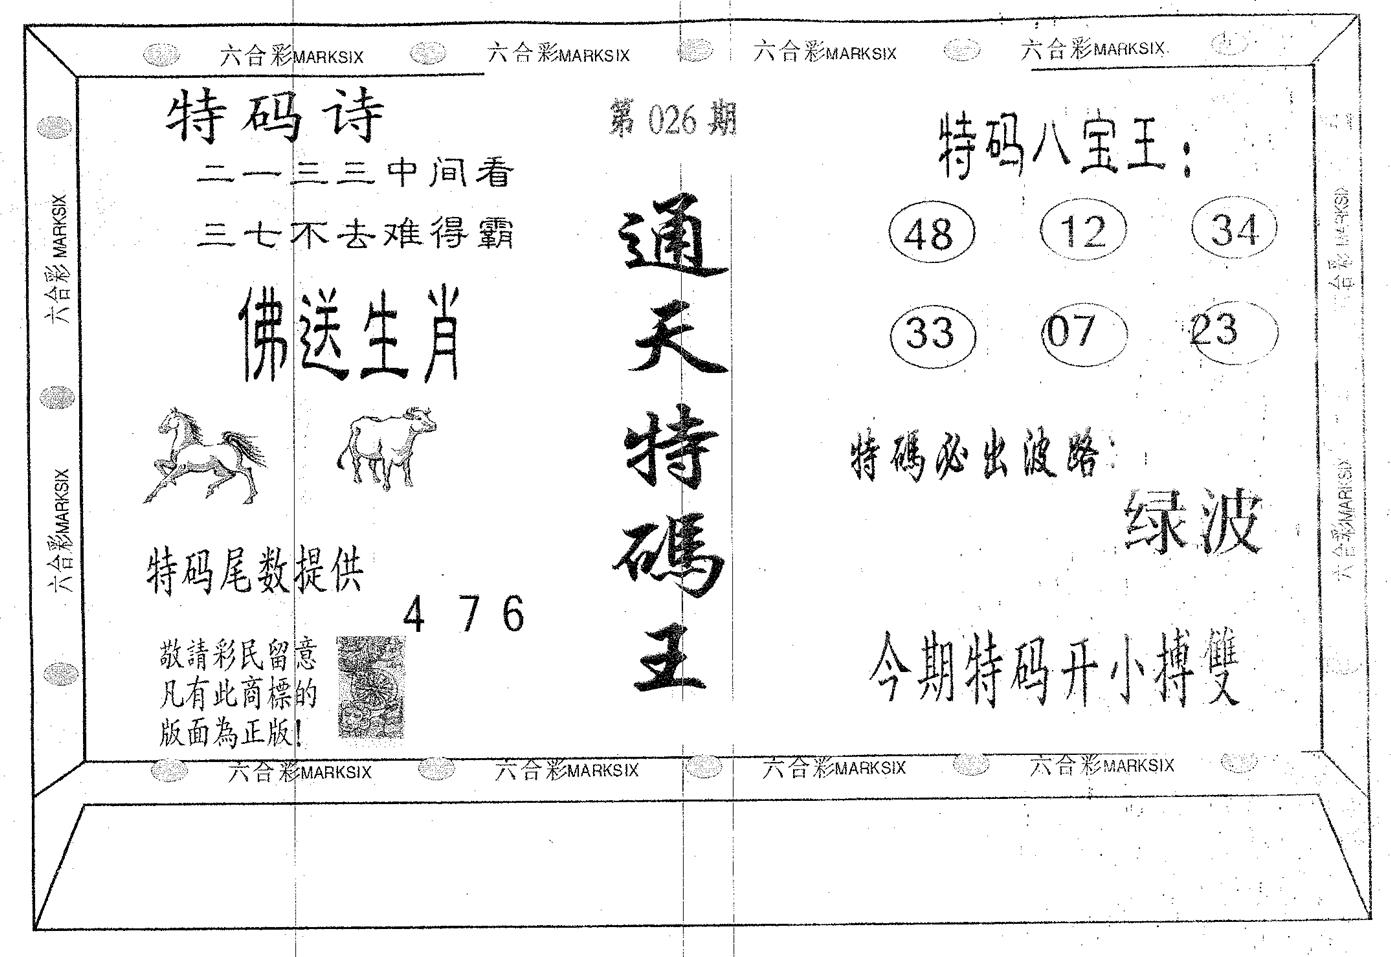 六合彩MARKSIX 六合彩MARKSIX 六合彩MARKSIX 六合彩MARKSIX
特码诗
二一三三中间看
三七不去难得霸
佛送生肖
特码尾数提供
4 7 6
敬請彩民留意
凡有此商標的
版面為正版!
第 026 期
通天特碼王
特码八宝王:
48 12 34
33 07 23
特碼必出波路:
绿波
今期特码开小搏雙
六合彩MARKSIX
六合彩MARKSIX
六合彩MARKSIX
六合彩MARKSIX
六合彩MARKSIX 六合彩MARKSIX 六合彩MARKSIX 六合彩MARKSIX